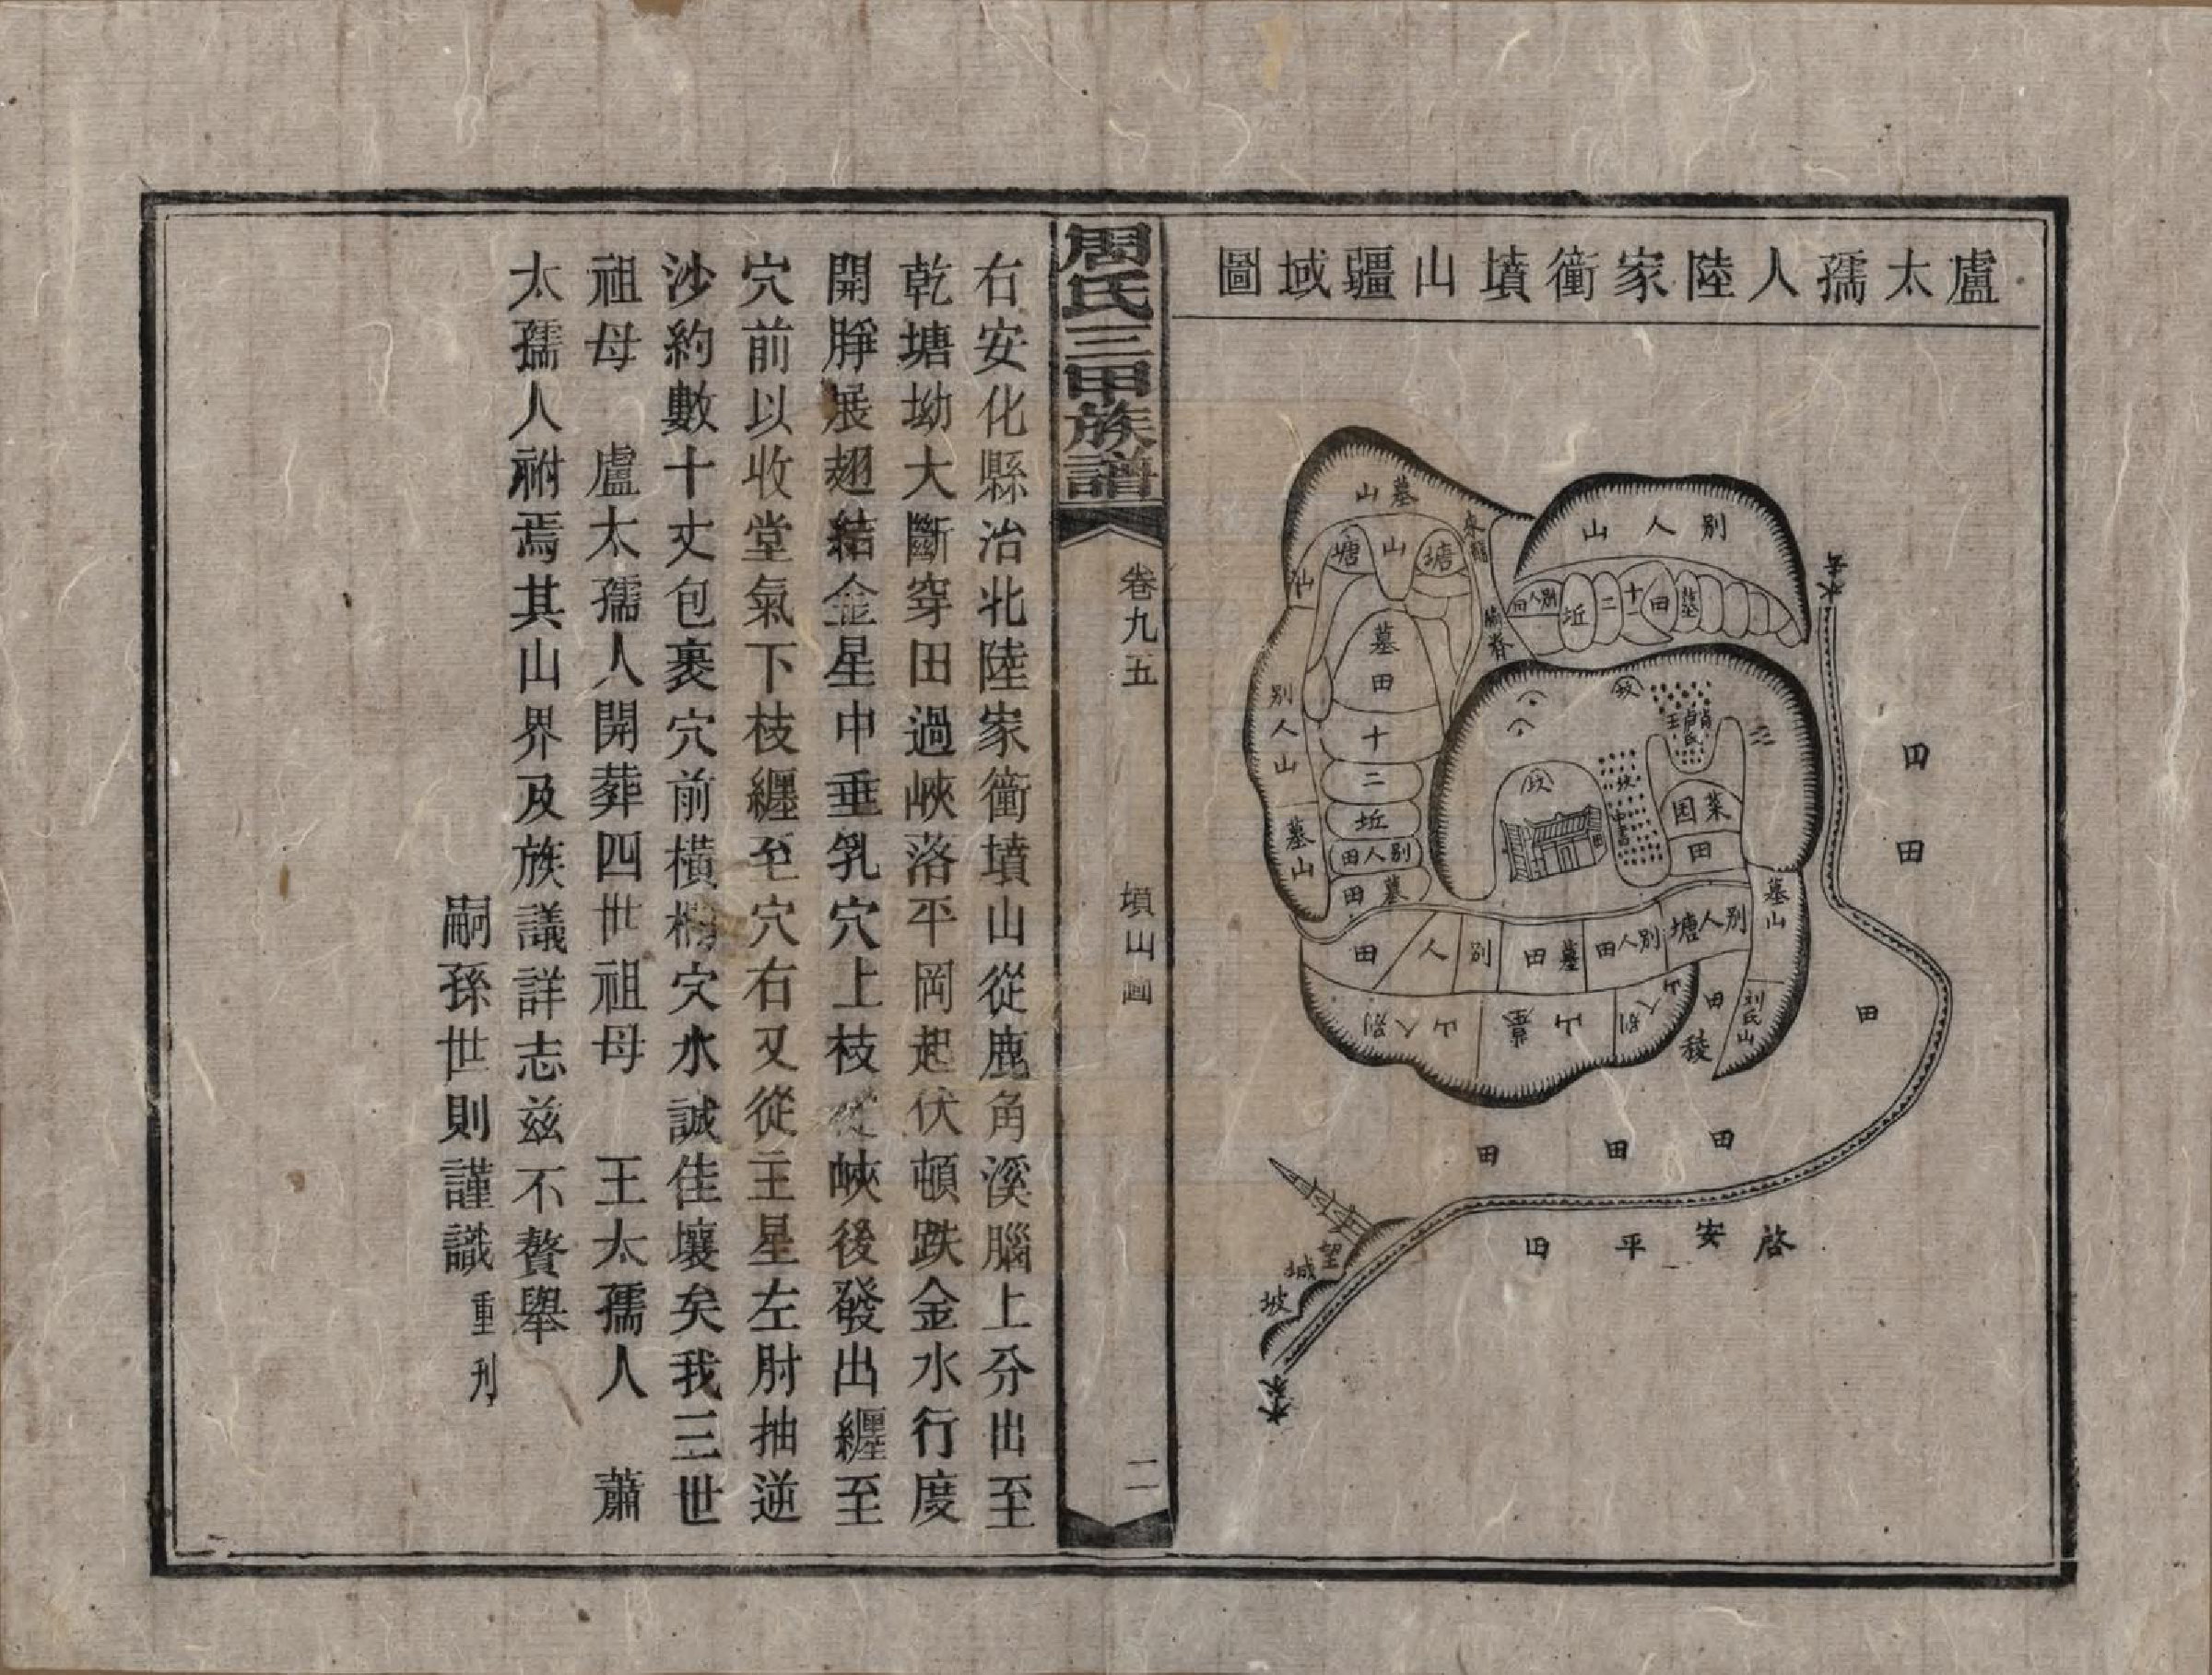 盧太孺人陸家衝墳山疆域圖
墓山
來龍
塘
山
塘
別人山
別人田
坵
二
十
田
墓
墓田十二坵
別人田
墓田
別人山
墓山
菜园
田
墓山
別人塘
別人田
墓田
別人田
別人山
墓山
別人山
田
刘氏山
水
田
田
田
田
田
田
啓安平田
望城坡
水來
周氏三甲族譜
卷九五
墳山畵
二
右安化縣治北陸家衝墳山從鹿角溪腦上分出至
乾塘坳大斷穿田過峽落平岡起伏頓跌金水行度
開腁展翅結金星中垂乳穴上枝從峽後發出纒至
穴前以收堂氣下枝纒至穴右又從主星左肘抽逆
沙約數十丈包裹穴前橫欄穴水誠佳壤矣我三世
祖母　盧太孺人開葬四世祖母　王太孺人　蕭
太孺人祔焉其山界及族議詳志茲不贅舉
嗣孫世則謹識重刋